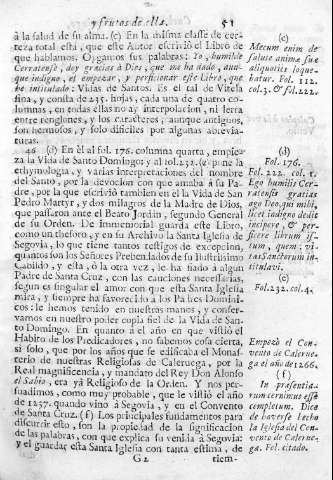 y frutos de ella. 51
à la salud de su alma. (c) En la misma classe de cer-
teza total està, que este Autor escriviò el Libro de
que hablamos. Oygamos sus palabras: Io, humilde
Cerratense, doy gracias à Dios, que me ha dado, aun-
que indigno, el empezar, y perficionar este Libro, que
he intitulado: Vidas de Santos. Es el tal de Vitela
fina, y consta de 235. hojas, cada una de quatro co-
lumnas, en todas ellas no ay interpolacion, ni letra
entre renglones, y los caractères, aunque antiguos,
son hermosos, y solo dificiles por algunas abrevia-
turas.
46 (d) En èl al fol. 176. columna quarta, empie-
za la Vida de Santo Domingo; y al fol. 232. (e) pone la
ethymologia, y varias interpretaciones del nombre
del Santo, por la devocion con que amaba à su Pa-
dre, por la que escriviò tambien en el la Vida de San
Pedro Martyr, y dos milagros de la Madre de Dios,
que passaron ante el Beato Jordàn, segundo General
de su Orden. De immemorial guarda este Libro,
como un thesoro, y en su Archivo la Santa Iglesia de
Segovia, lo que tiene tantos testigos de excepcion,
quantos son los Señores Prebendados de su Ilustrissimo
Cabildo, y està, ò la otra vez, le ha fiado à algun
Padre de Santa Cruz, con las cauciones necessarias,
segun es singular el amor con que esta Santa Iglesia
mira, y siempre ha favorecido à los Padres Domini-
cos: le hemos tenido en nuestras manos, y conser-
vamos en nuestro poder copia fiel de la Vida de San-
to Domingo. En quanto à el año en que vistiò el
Habito de los Predicadores, no sabemos cosa cierta,
si solo, que por los años que se edificaba el Monas-
terio de nuestras Religiosas de Caleruega, por la
Real magnificencia, y mandato del Rey Don Alonso
el Sabio, era yà Religioso de la Orden. Y nos per-
suadimos, como muy probable, que le vistiò el año
de 1257. quando vino à Segovia, y en el Convento
de Santa Cruz. (f) Los principales fundamentos para
discurrir esto, son la propiedad de la significacion
de las palabras, con que explica su venida à Segovia:
y el guardar esta Santa Iglesia con tanta estima, de
G 2 tiem-
(c)
Mecum enim de
salute animæ suæ
aliquoties loque-
batur. Fol. 112.
col. 3. & fol. 222.
(d)
Fol. 176.
Fol. 222. col. 1.
Ego humilis Cer-
ratensis gratias
ago Deo, qui mihi,
licet indigno dedit
incipere, & per-
ficere librum is-
tum, quem: vi-
tas Sanctorum in-
titulavi.
(e)
Fol. 232. col. 4.
Empezò el Con-
vento de Calerue-
ga el año de 1266.
(f)
In præsentia-
rum cernimus esse
completum. Dice
de haverse hecho
la Iglesia del Con-
vento de Calerue-
ga. Fol. citado.